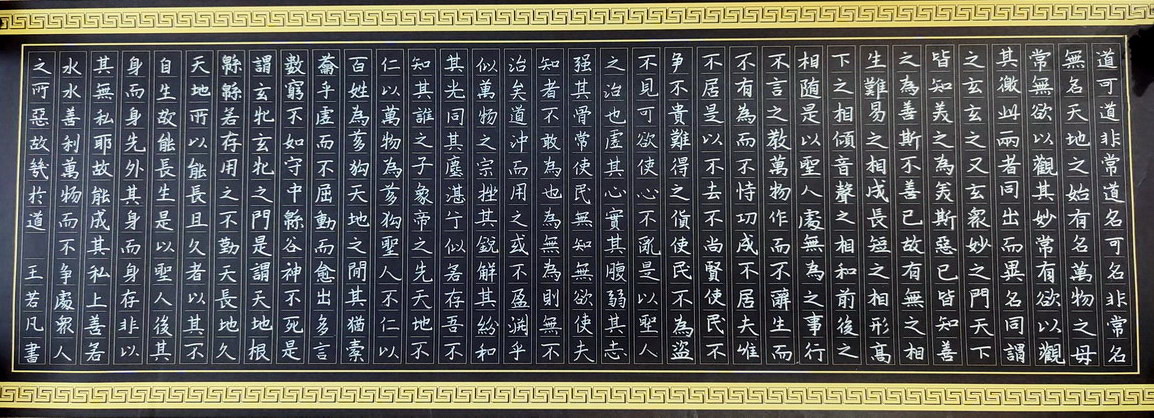 道可道非常道名可名非常名
無名天地之始有名萬物之母
常無欲以觀其妙常有欲以觀
其徼此兩者同出而異名同謂
之玄玄之又玄衆妙之門天下
皆知美之為美斯惡已皆知善
之為善斯不善已故有無之相
生難易之相成長短之相形高
下之相傾音聲之相和前後之
相随是以聖人處無為之事行
不言之教萬物作而不辭生而
不有為而不恃功成不居夫唯
不居是以不去不尚賢使民不
爭不貴難得之貨使民不為盜
不見可欲使心不亂是以聖人
之治也虛其心實其腹弱其志
强其骨常使民無知無欲使夫
知者不敢為也為無為則無不
治矣道沖而用之或不盈淵乎
似萬物之宗挫其銳解其紛和
其光同其塵湛兮似若存吾不
知其誰之子象帝之先天地不
仁以萬物為芻狗聖人不仁以
百姓為芻狗天地之間其猶橐
龠乎虛而不屈動而愈出多言
數窮不如守中緜谷神不死是
謂玄牝玄牝之門是謂天地根
緜緜若存用之不勤天長地久
天地所以能長且久者以其不
自生故能長生是以聖人後其
身而身先外其身而身存非以
其無私耶故能成其私上善若
水水善利萬物而不爭處衆人
之所惡故幾於道 王若凡書